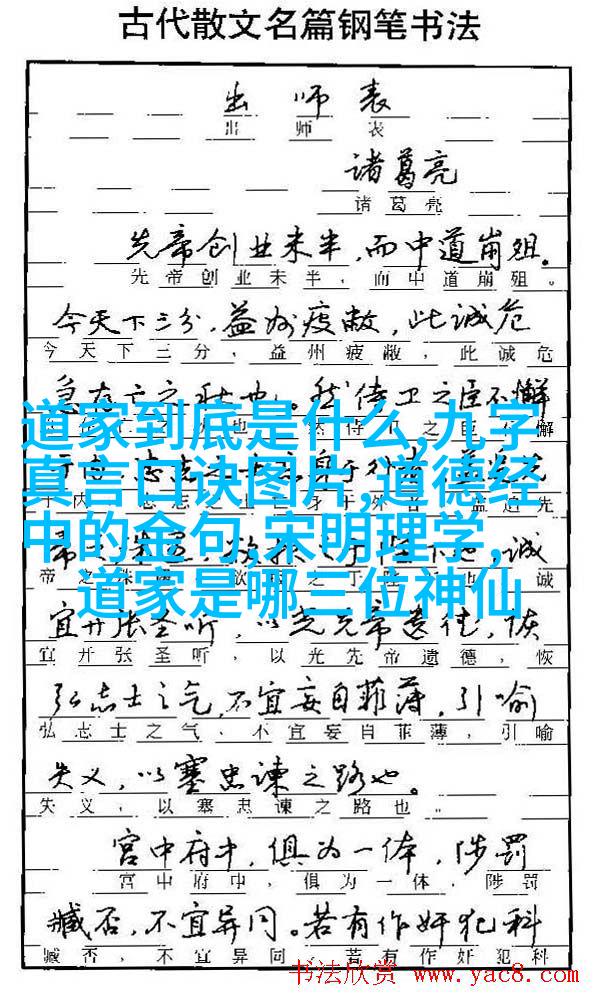 古代散文名篇钢笔书法
出师表
出师表
诸葛亮
诸葛亮
先帝创业未半,而中道崩殂。
先帝创业未半,而中道崩殂。
今天下三分,益州疲敝,此诚危
今天下三分,益州疲敝,此诚危
急存亡之秋也。然侍卫之臣不懈
道家到底是什么,九字
真言口诀图片,道德经
中的金句,宋明理学,
道家是哪三位神仙
宜开张圣听,以光先帝遗德,恢
宜开张圣听,以光先帝遗德,恢
弘志士之气,不宜妄自菲薄,引喻
弘志士之气,不宜妄自菲薄,引喻
失义,以塞忠谏之路也。
失义,以塞忠谏之路也。
宫中府中,俱为一体,陟罚
宫中府中,俱为一体,陟罚
臧否,不宜异同。若有作奸犯科
臧否,不宜异同。若有作奸犯科
书法欣赏 www.yac8.com